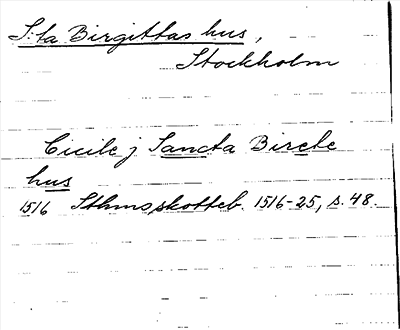 S:ta Birgittas hus,
Stockholm
Cicile j Sancta Birete
hus
1516 Sthmsskotteb. 1516-25, s. 48.